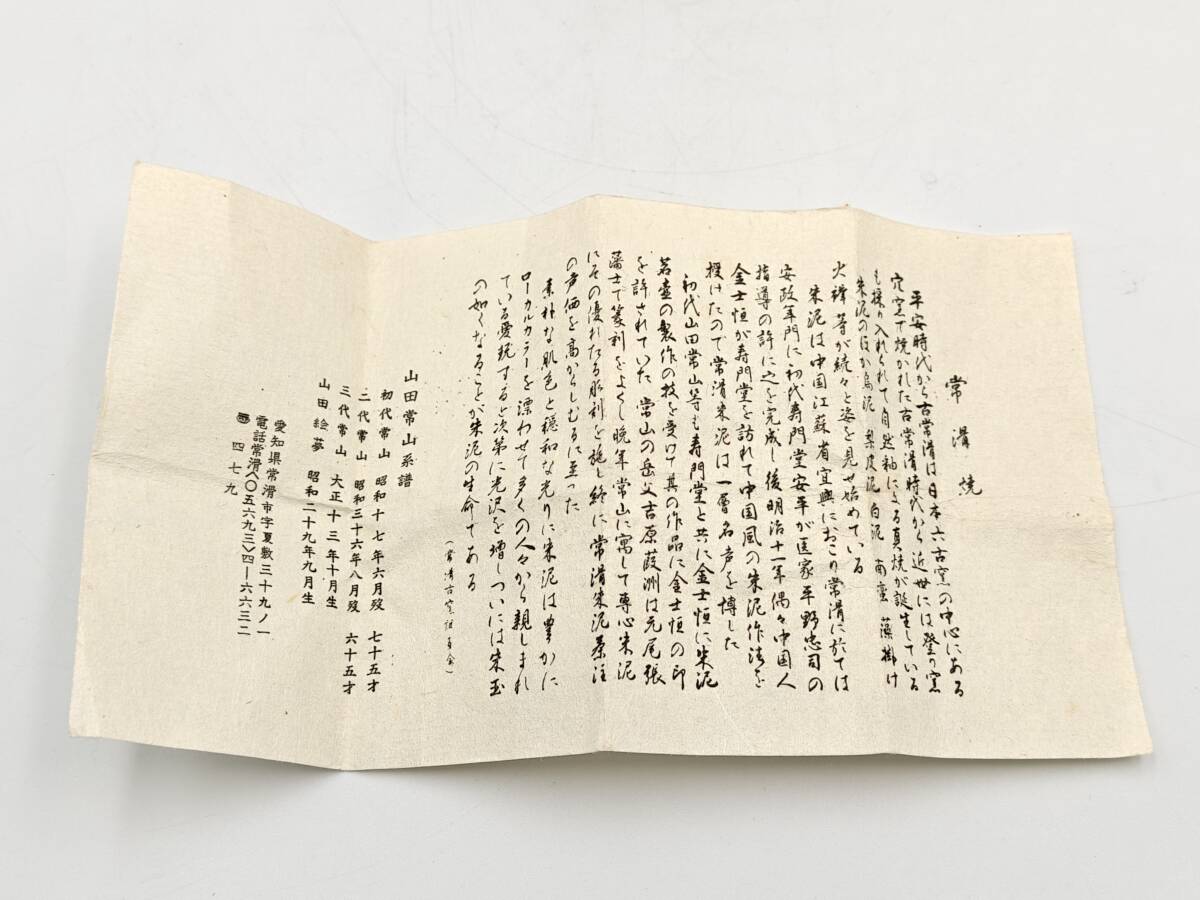 常滑焼
平安時代から古常滑は日本六古窯の中心にある
穴窯で焼かれた古常滑時代から近世には登り窯
も採り入れられて自然釉による真焼が誕生している
朱泥のほか烏泥 梨皮泥 白泥 南蛮 藻掛け
火襷等が続々と姿を見せ始めている
朱泥は中国江蘇省宜興におこり常滑に於ては
安政年間に初代寿門堂安平が医家平野忠司の
指導の許に之を完成し後明治十一年偶々中国人
金士恒が寿門堂を訪れて中国風の朱泥作法を
授けたので常滑朱泥は一層名声を博した
初代山田常山等も寿門堂と共に金士恒に朱泥
茗壷の製作の技を受け其の作品に金士恒の印
を許されていた 常山の岳父吉原葭洲は元尾張
藩士で篆刻をよくし晩年常山に寓して専心朱泥
にその優れたる彫刻を施し終に常滑朱泥茶注
の声価を高からしむるに至った
素朴な肌色と穏和な光りに朱泥は豊かに
ローカルカラーを漂わせて多くの人々から親しまれ
ている愛玩すると次第に光沢を増しついには朱玉
の如くなることが朱泥の生命である
山田常山系譜
初代常山 昭和十七年六月歿 七十五才
二代常山 昭和三十六年八月歿 六十五才
三代常山 大正十三年十月生
山田絵夢 昭和二十九年九月生
愛知県常滑市字夏敷三十九ノ一
電話常滑〈〇五六九三〉四―六六三二
四七九